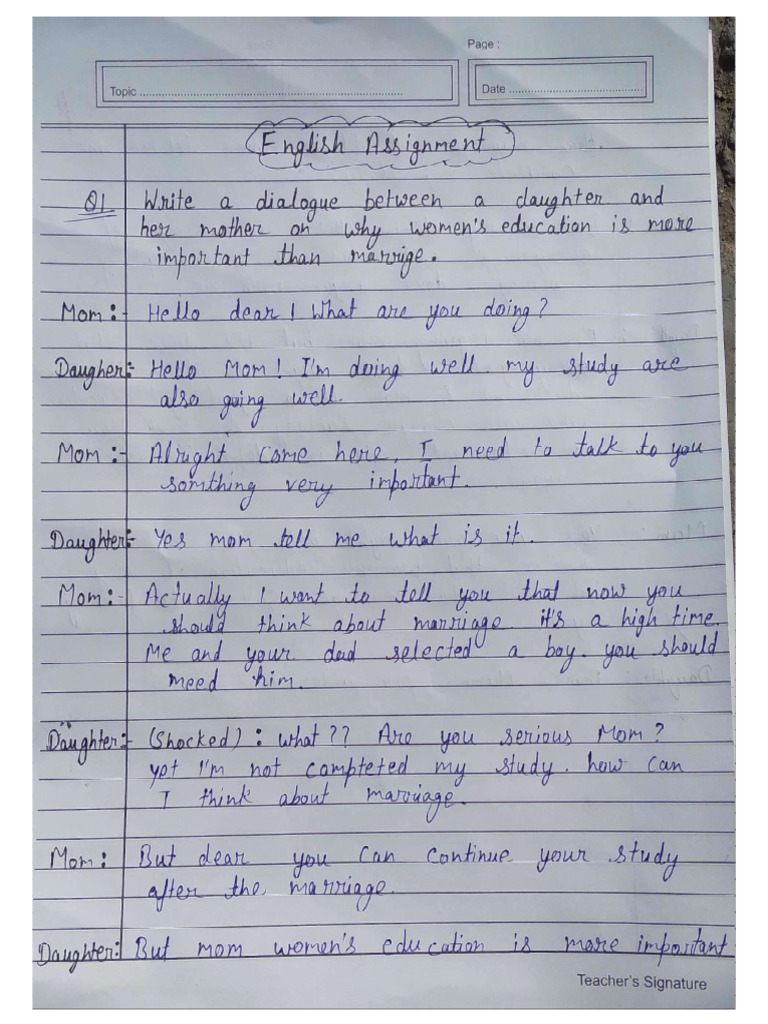 Page :
Topic ..........................................................................
Date ......................................
English Assignment
Q1 Write a dialogue between a daughter and
her mother on why women's education is more
important than marrige.
Mom :- Hello dear! What are you doing?
Daugher:- Hello Mom! I'm doing well. my study are
also going well.
Mom :- Alright come here, I need to talk to you
somthing very important.
Daughter:- Yes mom tell me what is it.
Mom:- Actually I want to tell you that now you
should think about marriage. it's a high time.
Me and your dad selected a boy. you should
meed him.
Daughter:- (Shocked) : what?? Are you serious Mom?
yet I'm not completed my study. how can
I think about marriage.
Mom: But dear you can continue your study
after the marriage.
Daughter: But mom women's education is more important
Teacher's Signature